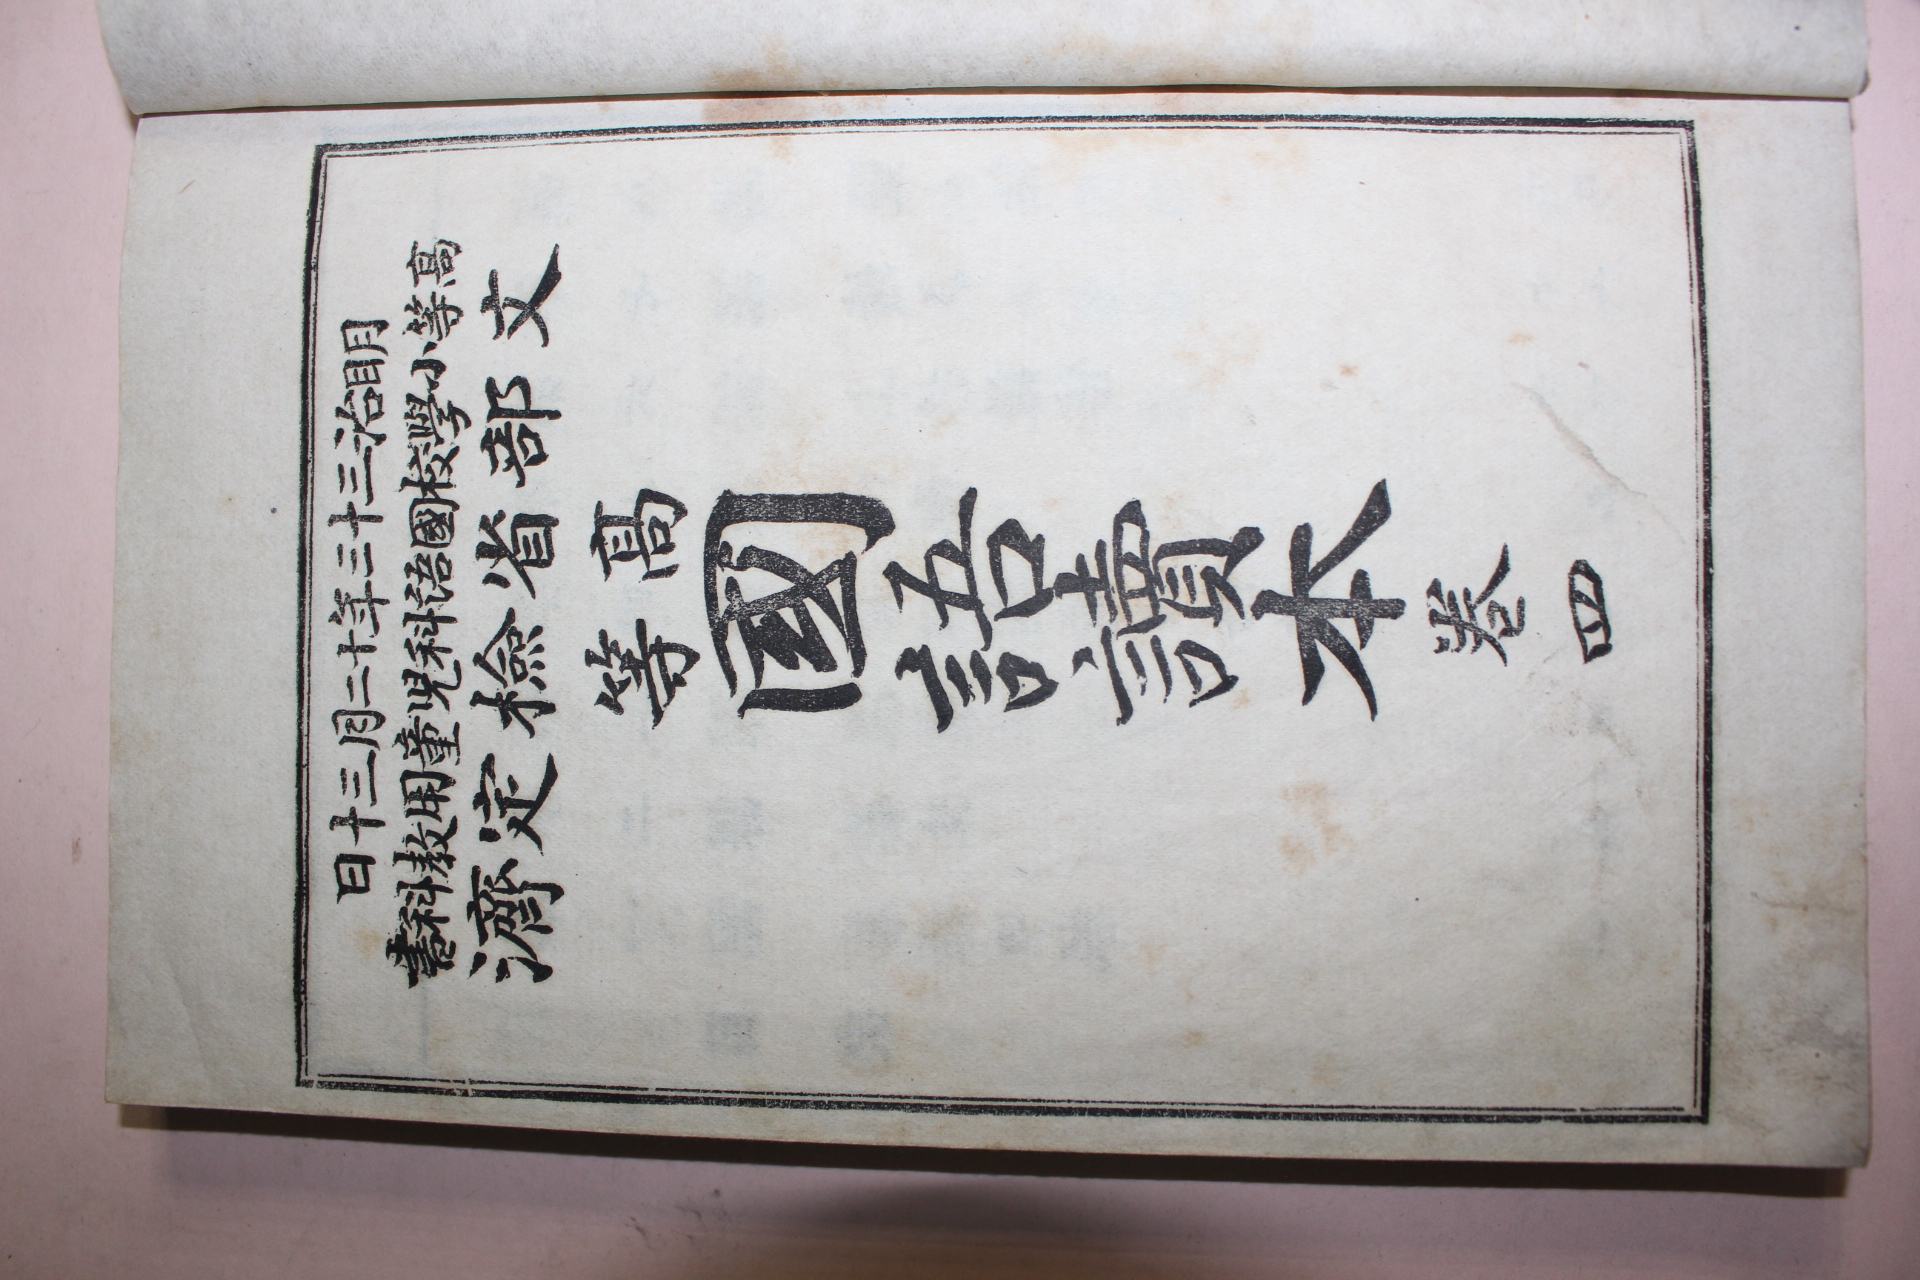 明治三十三年十二月三十日
高等小學校國語科兒童用教科書
文部省檢定濟
高等
國語讀本
卷四